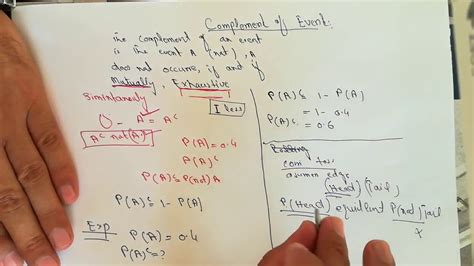 Complement of Event:
The complement of an event
is the event A (not), A
does not occurre, if and if
Mutually, Exhaustive
simintaneosly
I less
U - A = A^c
A^c not(A)
P(A) = 0.4
P(A)^c
P(A)^c = P(not) A
P(A)^c = 1 - P(A)
Exp P(A) = 0.4
P(A)^c = ?
P(A)^c = 1 - P(A)
= 1 - 0.4
P(A)^c = 0.6
coin toss
assumen edge
(Head) (tail)
P(Head) equilent P(not) tail